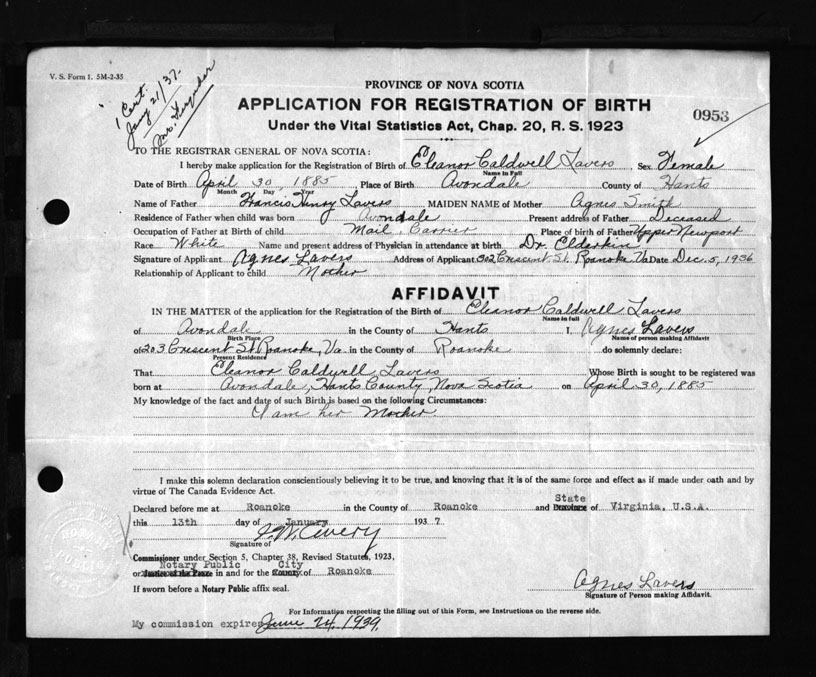 V. S. Form 1. 5M-2-35
1 Cert.
Jany 21/37.
PROVINCE OF NOVA SCOTIA
APPLICATION FOR REGISTRATION OF BIRTH
0953
Under the Vital Statistics Act, Chap. 20, R. S. 1923
TO THE REGISTRAR GENERAL OF NOVA SCOTIA:
I hereby make application for the Registration of Birth of Eleanor Caldwell Lavers Sex Female
Name in Full
Date of Birth April 30, 1885 Place of Birth Avondale County of Hants
Month Day Year
Name of Father Francis Henry Lavers MAIDEN NAME of Mother Agnes Smith
Residence of Father when child was born Avondale Present address of Father Deceased
Occupation of Father at Birth of child Mail Carrier Place of birth of Father Upper Newport
Race White Name and present address of Physician in attendance at birth Dr. Elderkin
Signature of Applicant Agnes Lavers Address of Applicant 302 Crescent St. Roanoke Va Date Dec. 5, 1936
Relationship of Applicant to child Mother
AFFIDAVIT
IN THE MATTER of the application for the Registration of the Birth of Eleanor Caldwell Lavers
Name in full
of Avondale in the County of Hants I, Agnes Lavers
Birth Place Name of person making Affidavit
of 203 Crescent St. Roanoke, Va. in the County of Roanoke do solemnly declare:
Present Residence
That Eleanor Caldwell Lavers Whose Birth is sought to be registered was
born at Avondale, Hants County, Nova Scotia on April 30, 1885
My knowledge of the fact and date of such Birth is based on the following Circumstances:
I am her Mother
I make this solemn declaration conscientiously believing it to be true, and knowing that it is of the same force and effect as if made under oath and by
virtue of The Canada Evidence Act.
State
Declared before me at Roanoke in the County of Roanoke and Province of Virginia, U.S.A.
this 13th day of January 1937
J. W. Avery
Signature of
Commissioner under Section 5, Chapter 38, Revised Statutes, 1923,
Notary Public City
or Justice of the Peace in and for the County of Roanoke
If sworn before a Notary Public affix seal.
Agnes Lavers
Signature of Person making Affidavit.
For Information respecting the filling out of this Form, see Instructions on the reverse side.
My commission expires June 24, 1939.